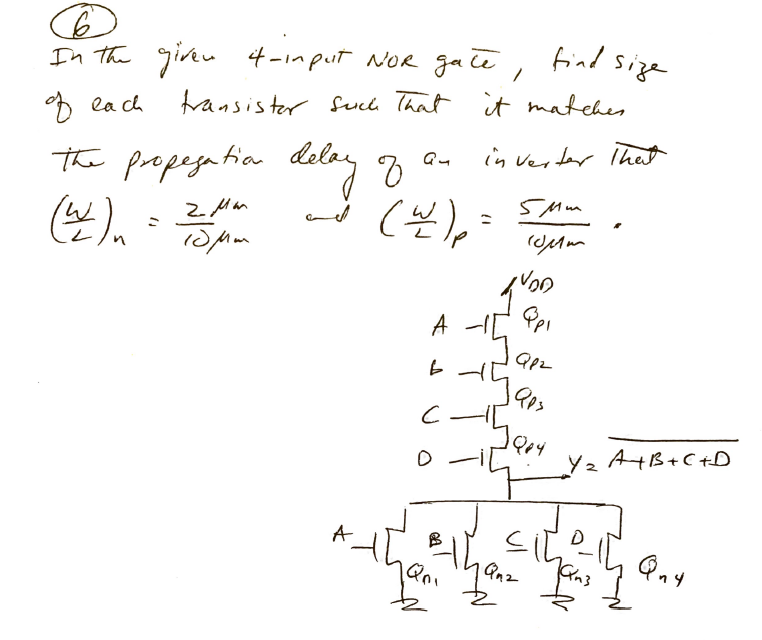 6
In the given 4-input NOR gate, find size
of each transistor such that it matches
the propegation delay of an inverter that
(W/L)n = 2 μm/10 μm and (W/L)p = 5 μm/10 μm .
VDD
A Qp1
b Qp2
C Qp3
D Qp4
Y = A+B+C+D
A B C D
Qn1 Qn2 Qn3 Qn4